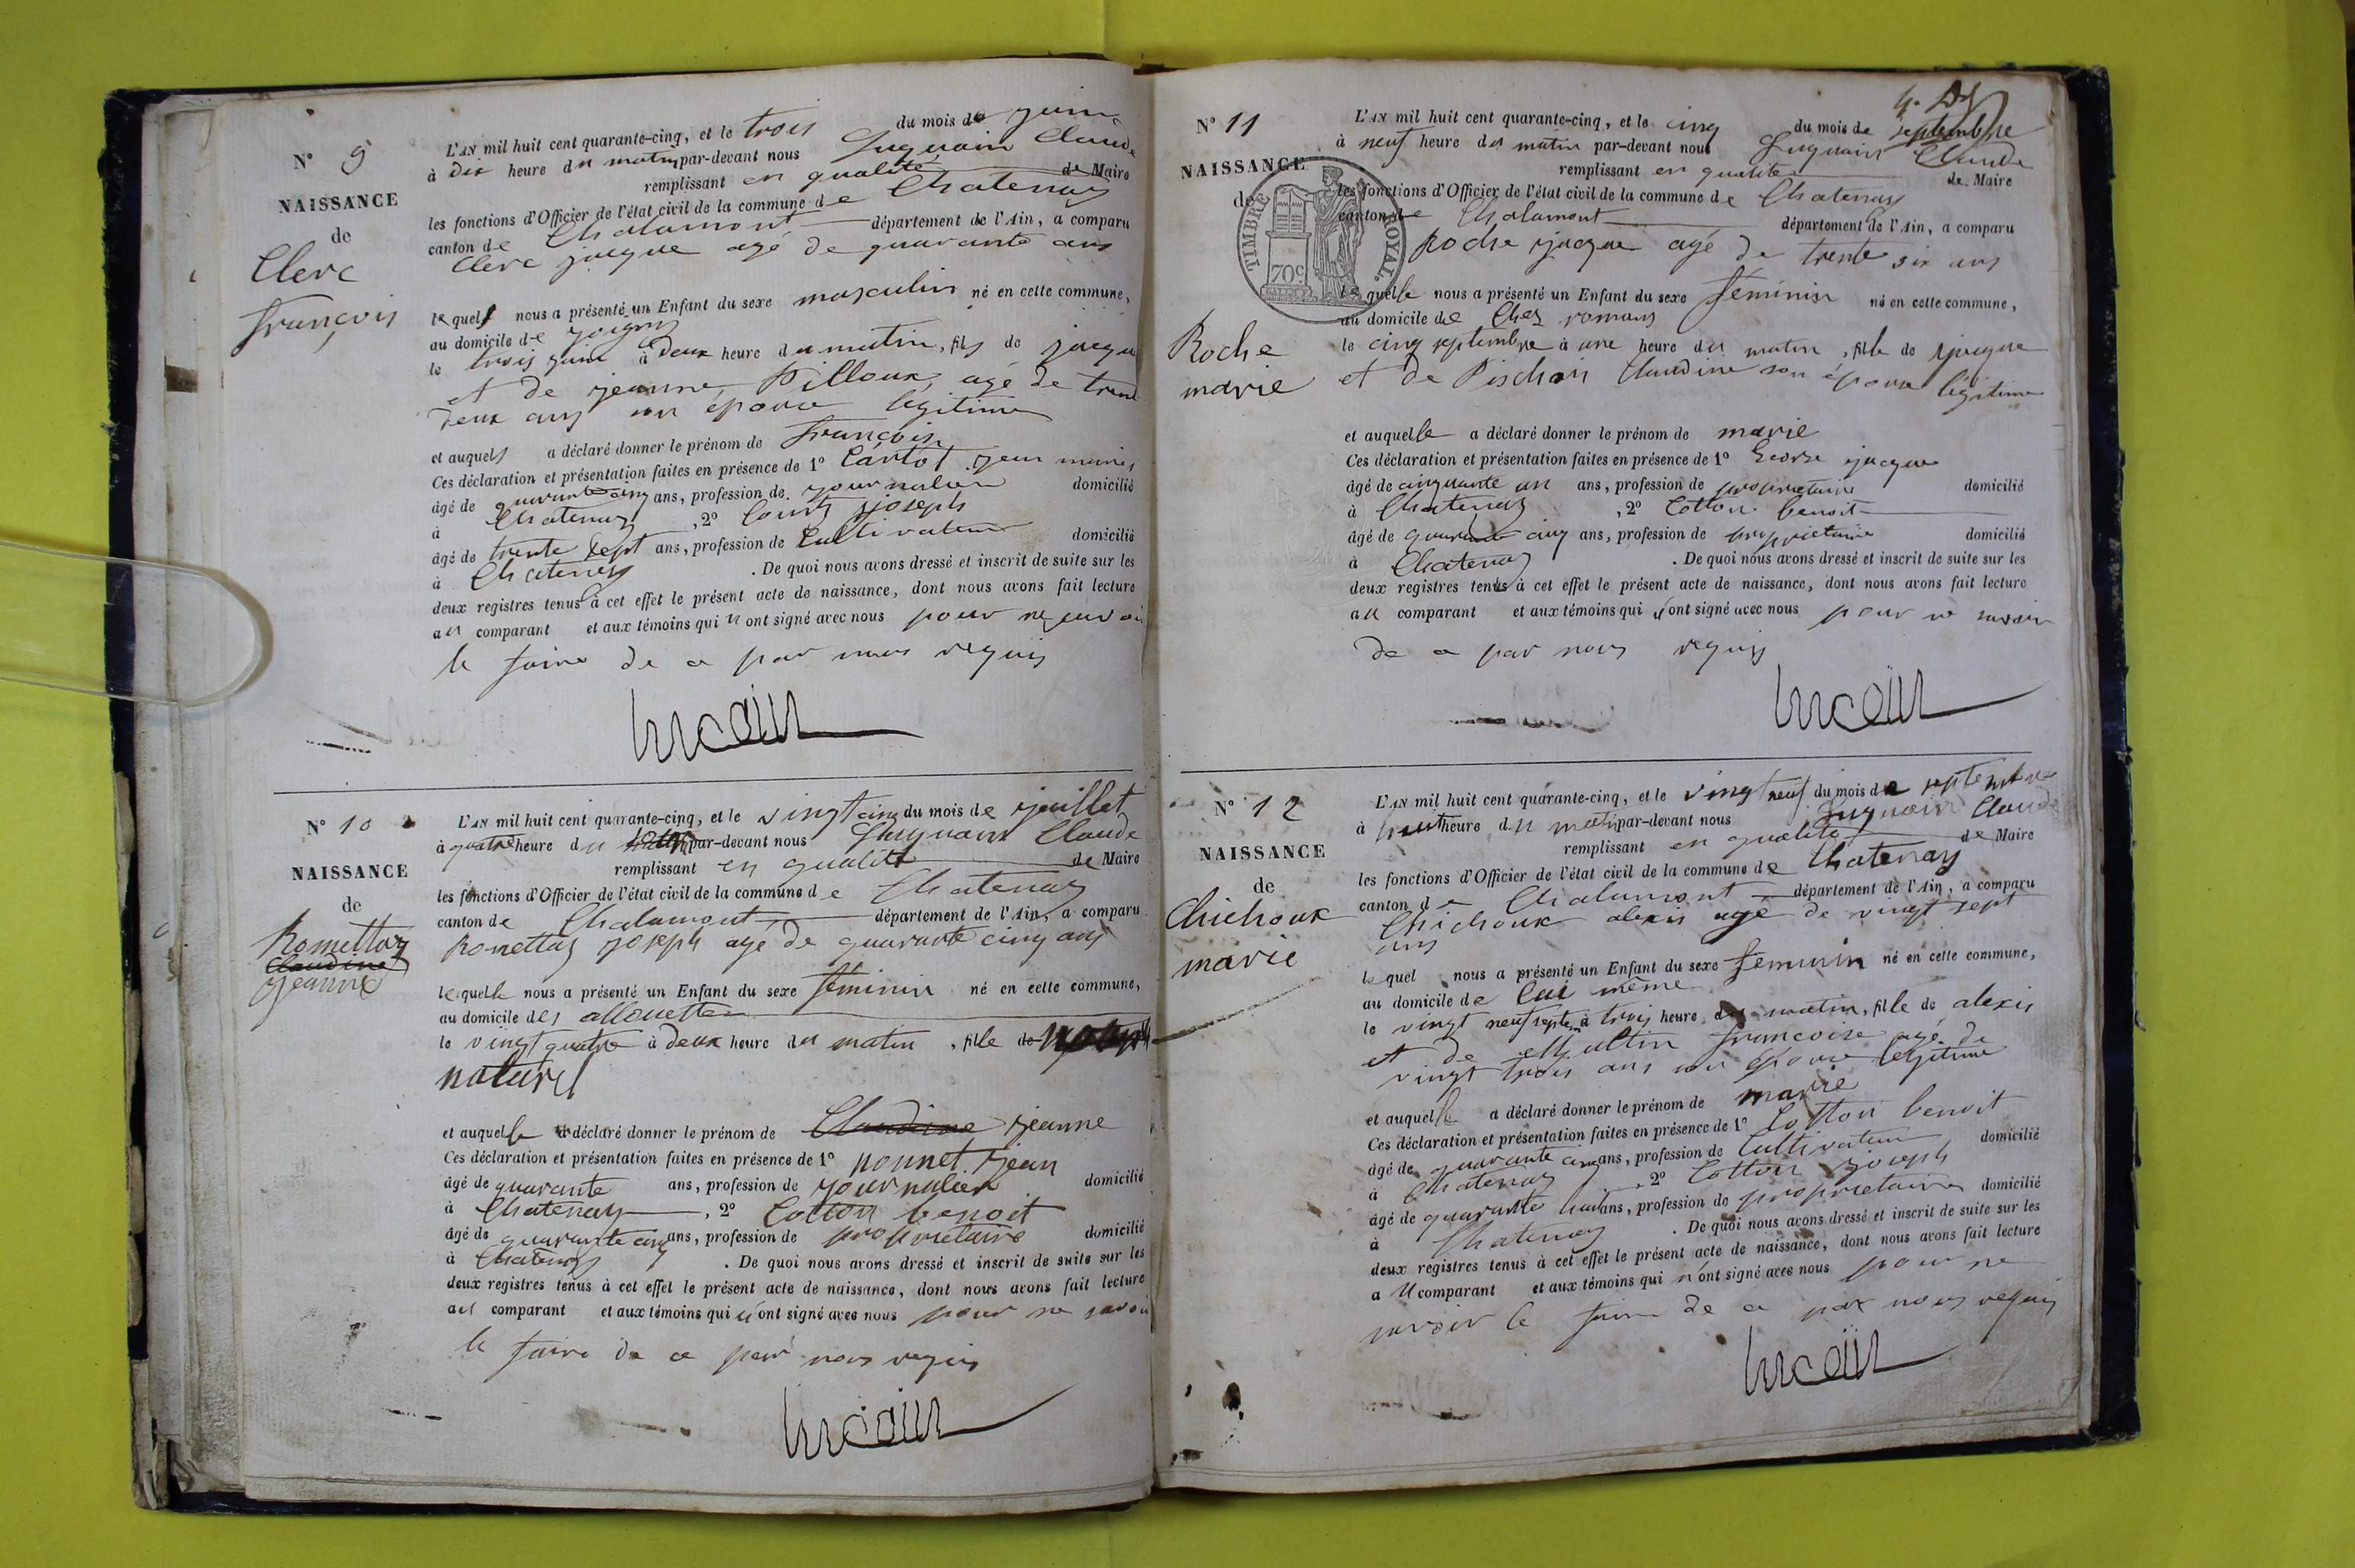 N° 9
NAISSANCE
de
Clerc
françois
L'AN mil huit cent quarante-cinq, et le trois du mois de juin
à dix heure du matin par-devant nous Luquain Claude
remplissant en qualité de Maire
les fonctions d'Officier de l'état civil de la commune de Chatenay
canton de Chalamont département de l'Ain, a comparu
Clerc jacque agé de quarante ans
lequel nous a présenté un Enfant du sexe masculin né en cette commune,
au domicile de
le trois juin à deux heure du matin, fils de jacque
et de jeanne Pilloux, agé de trente
deux ans son épouse légitime
et auquel a déclaré donner le prénom de françois
Ces déclaration et présentation faites en présence de 1° jean marie
âgé de quarante cinq ans, profession de journalier domicilié
à Chatenay, 2° joseph
âgé de trente sept ans, profession de Cultivateur domicilié
à Chatenay. De quoi nous avons dressé et inscrit de suite sur les
deux registres tenus à cet effet le présent acte de naissance, dont nous avons fait lecture
au comparant et aux témoins qui n ont signé avec nous pour ne
le faire de ce par nous requis
N° 10
NAISSANCE
de
Romettay
Claudine
jeanne
L'AN mil huit cent quarante-cinq, et le vingt cinq du mois de juillet
à quatre heure du par-devant nous Luquain Claude
remplissant en qualité de Maire
les fonctions d'Officier de l'état civil de la commune de Chatenay
canton de Chalamont département de l'Ain, a comparu
Romettay joseph agé de quarante cinq ans
lequelle nous a présenté un Enfant du sexe féminin né en cette commune,
au domicile des allouettes
le vingt quatre à deux heure du matin, fille de
naturel
et auquelle a déclaré donner le prénom de Claudine jeanne
Ces déclaration et présentation faites en présence de 1° nonnet jean
âgé de quarante ans, profession de journalier domicilié
à Chatenay, 2° Cotton benoit
âgé de quarante cinq ans, profession de propriétaire domicilié
à Chatenay. De quoi nous avons dressé et inscrit de suite sur les
deux registres tenus à cet effet le présent acte de naissance, dont nous avons fait lecture
au comparant et aux témoins qui n'ont signé avec nous pour ne savoir
le faire de ce par nous requis
N° 11
NAISSANCE
de
TIMBRE ROYAL
70c
Roche
marie
L'AN mil huit cent quarante-cinq, et le cinq du mois de septembre
à neuf heure du matin par-devant nous Luquain Claude
remplissant en qualité de Maire
les fonctions d'Officier de l'état civil de la commune de Chatenay
canton de Chalamont département de l'Ain, a comparu
Roche jacque agé de trente six ans
lequelle nous a présenté un Enfant du sexe féminin né en cette commune,
au domicile de Chez romans
le cinq septembre à une heure du matin, fille de jacque
et de Pischon Claudine son épouse légitime
et auquelle a déclaré donner le prénom de marie
Ces déclaration et présentation faites en présence de 1° jacque
âgé de cinquante un ans, profession de propriétaire domicilié
à Chatenay, 2° Cotton benoit
âgé de quarante cinq ans, profession de propriétaire domicilié
à Chatenay. De quoi nous avons dressé et inscrit de suite sur les
deux registres tenus à cet effet le présent acte de naissance, dont nous avons fait lecture
au comparant et aux témoins qui n'ont signé avec nous pour ne savoir
de ce par nous requis
N° 12
NAISSANCE
de
Chichoux
marie
L'AN mil huit cent quarante-cinq, et le vingt neuf du mois de septembre
à huit heure du matin par-devant nous Luquain Claude
remplissant en qualité de Maire
les fonctions d'Officier de l'état civil de la commune de Chatenay
canton de Chalamont département de l'Ain, a comparu
Chichoux alexis agé de vingt sept
ans
lequel nous a présenté un Enfant du sexe féminin né en cette commune,
au domicile de lui même
le vingt neuf septem à trois heure du matin, fille de alexis
et de francoise agé de
vingt trois ans son épouse légitime
et auquelle a déclaré donner le prénom de marie
Ces déclaration et présentation faites en présence de 1° Cotton benoit
âgé de quarante cinq ans, profession de Cultivateur domicilié
à Chatenay, 2° Cotton joseph
âgé de quarante huit ans, profession de propriétaire domicilié
à Chatenay. De quoi nous avons dressé et inscrit de suite sur les
deux registres tenus à cet effet le présent acte de naissance, dont nous avons fait lecture
au comparant et aux témoins qui n'ont signé avec nous pour ne
savoir le faire de ce par nous requis